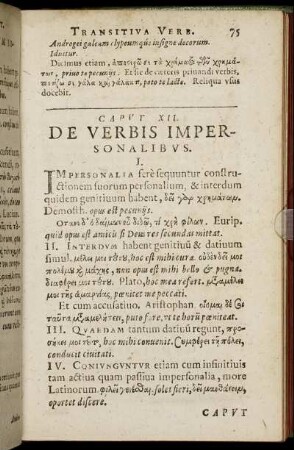 TRANSITIVA VERB. 75
Androgei galeam clypeumque insigne decorum.
Induitur.
Dicimus etiam, ἀποστερῶ σε τὰ χρήματα καὶ τῶν χρημάτων,
privo te pecuniis. Et sic de ceteris privandi verbis,
ποτίζω σε γάλα καὶ γάλακτι, poto te lacte. Reliqua vsus
docebit.
CAPVT XII.
DE VERBIS IMPER-
SONALIBVS.
I.
IMPERSONALIA ferè sequuntur constru-
ctionem suorum personalium, & interdum
quidem genitiuum habent, δεῖ γὰρ χρημάτων.
Demosth. opus est pecuniis.
Ὅταν δ' ὁ δαίμων εὖ διδῷ, τί χρὴ φίλων. Eurip.
quid opus est amicis si Deus res secundas mittat.
II. INTERDVM habent genitiuū & datiuum
simul. μέλει μοι τούτου, hoc est mihi curæ. οὐδὲν δεῖ μοι
πολέμου καὶ μάχης, non opus est mihi bello & pugna.
διαφέρει μοι τούτου. Plato, hoc mea refert. μεταμέλει
μοι τῆς ἁμαρτίας, pœnitet me peccati.
Et cum accusatiuo. Aristophan. οἶμαί σε
ταῦτα μεταμελήσειν, puto fore, vt te horū pœniteat.
III. QVAEDAM tantum datiuū regunt, προ-
σήκει μοι τοῦτ', hoc mihi conuenit. Συμφέρει τῇ πόλει,
conducit ciuitati.
IV. CONIVNGVNTVR etiam cum infinitiuis
tam actiua quam passiua impersonalia, more
Latinorum. φιλεῖ γενέσθαι. solet fieri, δεῖ μανθάνειν,
oportet discere.
CAPVT